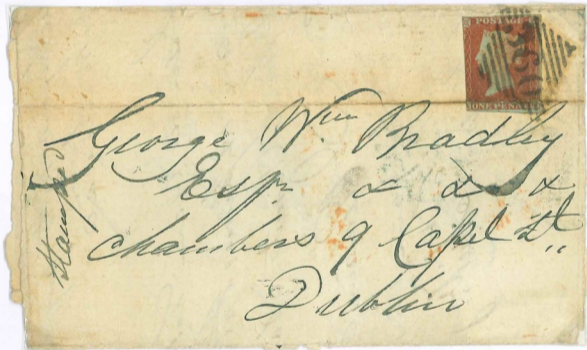 POSTAGE
ONE PENNY
George Wm Bradley
Esqr & & &
Chambers 9 Capel St
Dublin
Stamped